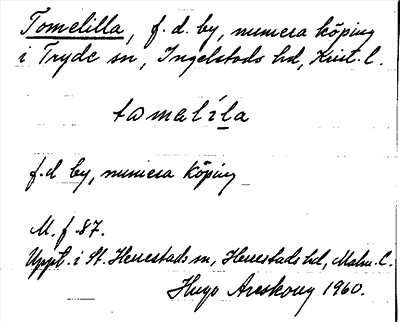 Tomelilla, f. d. by, numera köping
i Tryde sn, Ingelstads hd, Krist. l.
tomalíla
f.d by, numera köping
M. f. 87.
Uppt. i St. Herrestads sn, Herrestads hd, Malm. l.
Hugo Areskoug 1960.